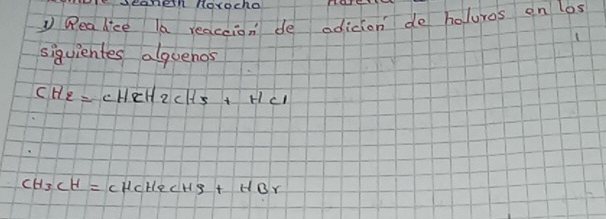 Jeaneth Morocho
1) Realice la reacción de adición de haluros en los
siguientes alquenos
CH2 = CHCH2CH3 + HCl
CH3CH = CHCH2CH3 + HBr